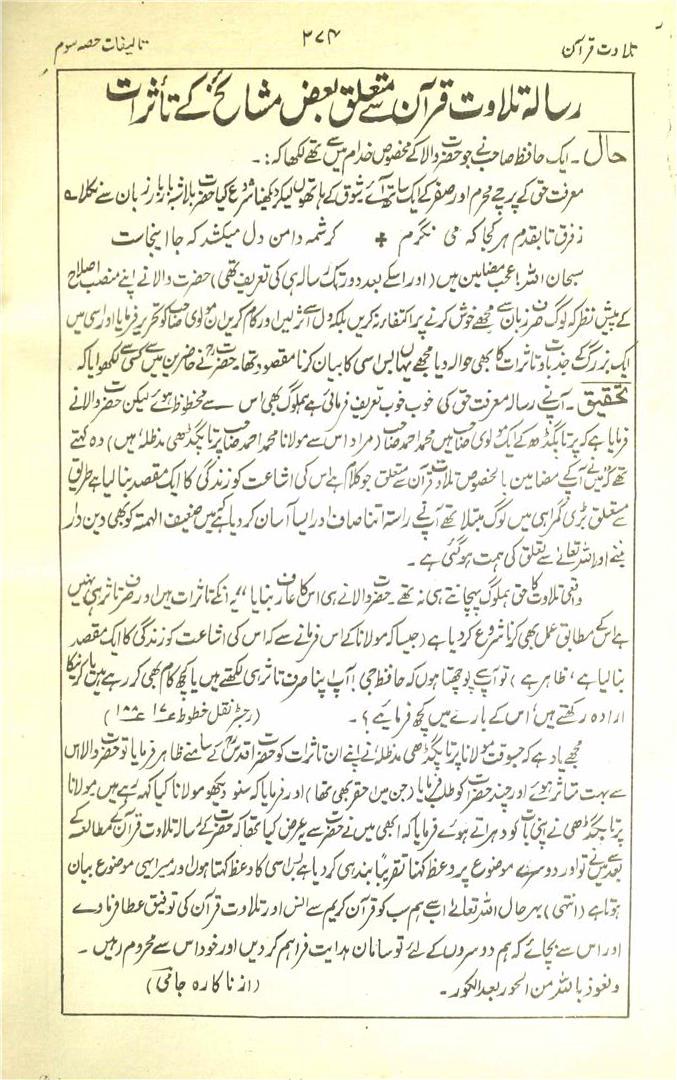 تلاوت قرآن
۲۷۴
تالیفات حصہ سوم
رسالہ تلاوت قرآن سے متعلق بعض مشائخ کے تأثرات
حال ۔ ایک حافظ صاحب نے جو حضرت والا کے مخصوص خدام میں سے تھے لکھا کہ :۔
معرفت حق کے پرچے محرم اور صفر کے ایک ساتھ آئے شوق کے ہاتھوں لیکر دیکھنا شروع کیا حضرت بلاشبہ بار بار زبان سے نکلا ہے
زفرق تا بقدم ہر کجا کہ می نگرم + کرشمہ دامن دل میکشد کہ جا اینجاست
سبحان اللہ! عجب مضامین ہیں (اور اسکے بعد دور تک رسالہ ہی کی تعریف تھی) حضرت والا نے اپنے منصب اصلاح
کے پیش نظر کہ لوگ صرف زبان سے مجھے خوش کرنے پر اکتفا نہ کریں بلکہ دل سے اثر لیں اور کام کریں ان مولوی صاحب کو تحریر فرمایا اور اسی میں
ایک بزرگ کے جذبات و تاثرات کا بھی حوالہ دیا مجھے یہاں بس اسی کا بیان کرنا مقصود تھا۔ حضرتؒ نے حاضرین میں سے کسی سے لکھوایا کہ
تحقیق ۔ آپنے رسالہ معرفت حق کی خوب خوب تعریف فرمائی ہے ہملوگ بھی اس سے محظوظ ہوئے لیکن حضرت والا نے
فرمایا ہے کہ پرتابگڈھ کے ایک مولوی صاحب ہیں محمد احمد صاحب (مراد اس سے مولانا محمد احمد صاحب پرتابگڈھی مدظلہٗ ہیں) وہ کہتے
تھے کہ میں نے آپکے مضامین بالخصوص تلاوت قرآن سے متعلق جو کلام ہے اس کی اشاعت کو زندگی کا ایک مقصد بنا لیا ہے طریق
سے متعلق بڑی گمراہی میں لوگ مبتلا تھے آپنے راستہ اتنا صاف اور ایسا آسان کر دیا کہ ہمیں ضعیف الہمتہ کو بھی دین دار
بننے اور اللہ تعالے سے تعلق کی ہمت ہو گئی ہے ۔
واقعی تلاوت کا حق ہملوگ پہچانتے ہی نہ تھے۔ حضرت والا نے ہی اس کا عارف بنایا" یہ انکے تاثرات ہیں اور صرف تاثر ہی نہیں
ہے اسکے مطابق عمل بھی کرنا شروع کر دیا ہے (جیسا کہ مولانا کے اس فرمانے سے کہ اس کی اشاعت کو زندگی کا ایک مقصد
بنا لیا ہے، ظاہر ہے) تو آپ سے پوچھتا ہوں کہ حافظ جی! آپ اپنا صرف تاثر ہی لکھتے ہیں یا کچھ کام بھی کر رہے ہیں یا کرنیکا
ارادہ رکھتے ہیں اس کے بارے میں کچھ فرمایئے؟ ۔ (رجسٹر نقل خطوط ۱۷ ۱۸۸)
مجھے یاد ہے کہ جسوقت مولانا پرتابگڈھی مدظلہٗ نے اپنے ان تاثرات کو حضرت اقدسؒ کے سامنے ظاہر فرمایا تو حضرت والا اس
سے بہت متاثر ہوئے اور چند حضرات کو طلب فرمایا (جن میں احقر بھی تھا) اور فرمایا کہ سنو دیکھو مولانا کیا کہہ رہے ہیں مولانا
پرتابگڈھی نے اپنی بات کو دہراتے ہوئے فرمایا کہ ابھی میں نے حضرت سے یہ عرض کیا تھا کہ حضرت کے رسالہ تلاوت قرآن کے مطالعہ کے
بعد میں نے تو اور دوسرے موضوع پر وعظ کہنا تقریباً بند ہی کر دیا ہے بس اسی کا وعظ کہتا ہوں اور میرا یہی موضوع بیان
ہوتا ہے (انتہی) بہرحال اللہ تعالے اب ہم سب کو قرآن کریم سے انس اور تلاوت قرآن کی توفیق عطا فرماوے
اور اس سے بچائے کہ ہم دوسروں کے لئے تو سامان ہدایت فراہم کر دیں اور خود اس سے محروم رہیں ۔
ونعوذ باللہ من الحور بعد الکور۔ (از ناکارہ جامی)